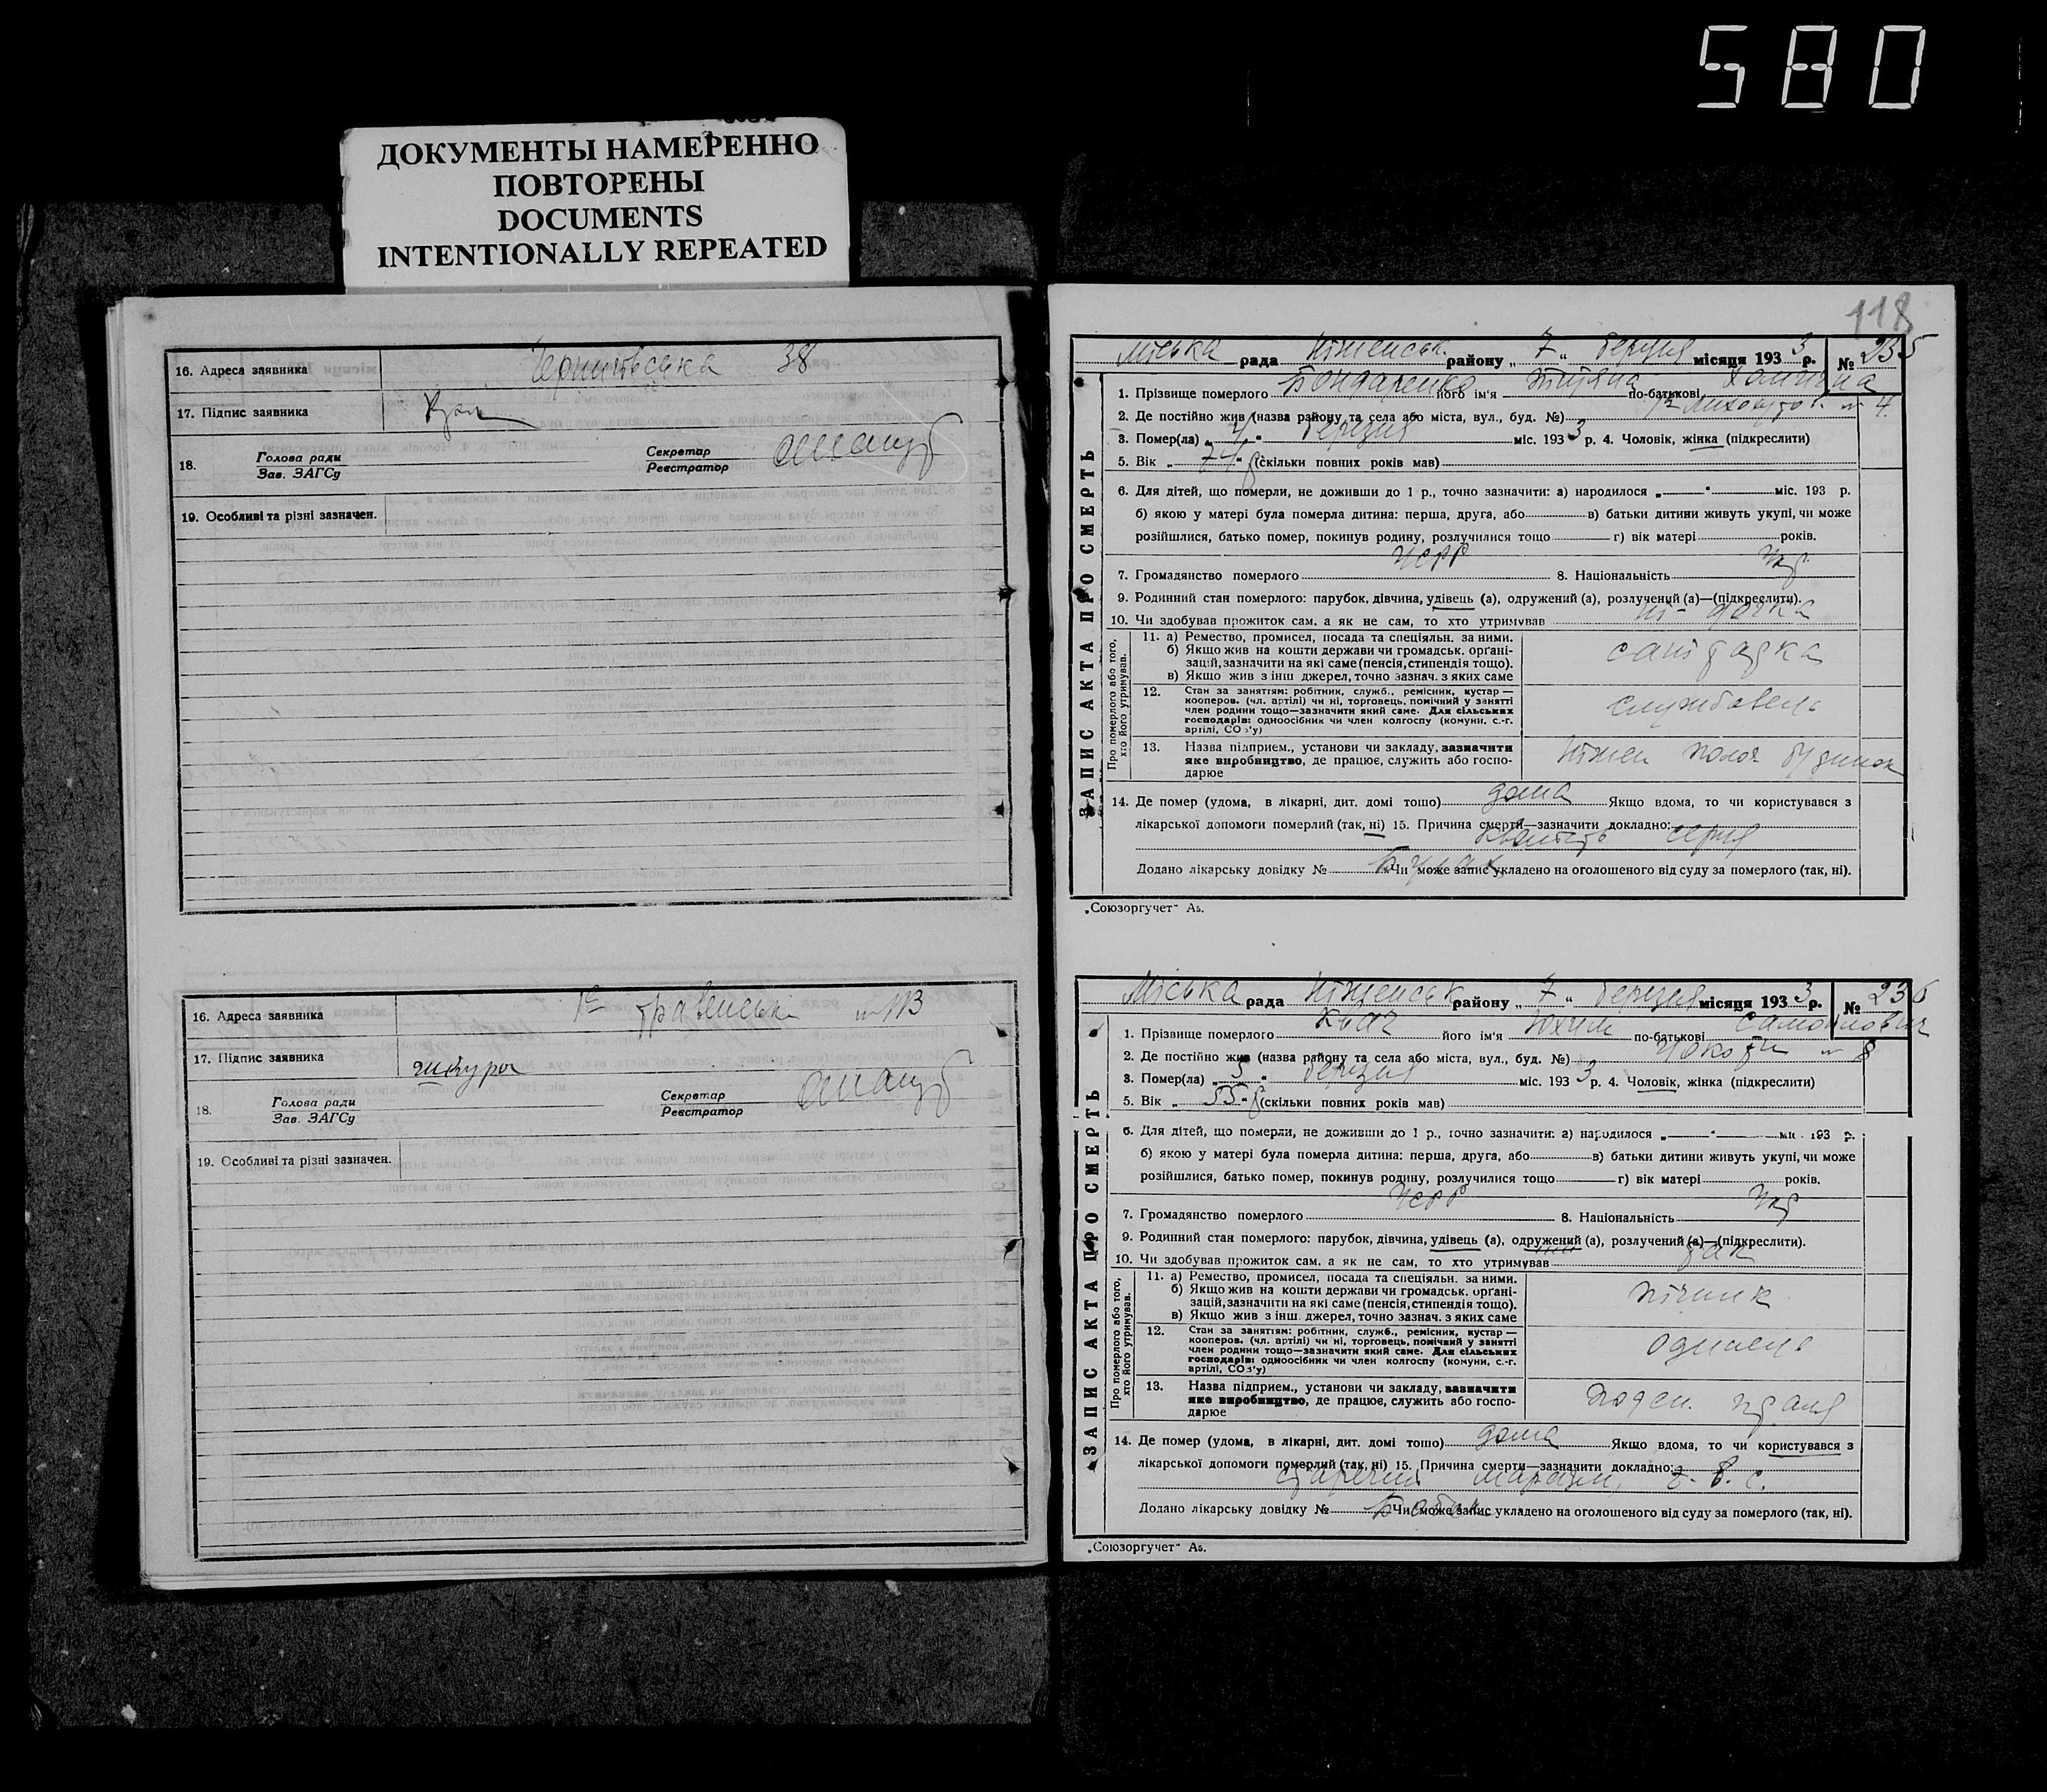 580
ДОКУМЕНТЫ НАМЕРЕННО
ПОВТОРЕНЫ
DOCUMENTS
INTENTIONALLY REPEATED
16. Адреса заявника Чернигівська 38
17. Підпис заявника
18. Голова ради
Зав. ЗАГСу
Секретар
Реєстратор
19. Особливі та різні зазначен.
16. Адреса заявника 1е травенська № 113
17. Підпис заявника
18. Голова ради
Зав. ЗАГСу
Секретар
Реєстратор
19. Особливі та різні зазначен.
118
ЗАПИС АКТА ПРО СМЕРТЬ
Міська рада Ніженськ. району „ 7 “ березня місяця 1933 р. № 235
1. Прізвище померлого Бондаренко його ім'я Тетяна по-батькові
2. Де постійно жив (назва району та села або міста, вул., буд. №) № 4.
3. Помер(ла) „ 4 “ березня міс. 1933 р. 4. Чоловік, жінка (підкреслити)
5. Вік „ 74 “ (скільки повних років мав)
6. Для дітей, що померли, не доживши до 1 р., точно зазначити: а) народилося „ “ міс. 193 р.
б) якою у матері була померла дитина: перша, друга, або в) батьки дитини живуть укупі, чи може
розійшлися, батько помер, покинув родину, розлучилися тощо г) вік матері років.
7. Громадянство померлого УСРР 8. Національність Укр.
9. Родинний стан померлого: парубок, дівчина, удівець (а), одружений (а), розлучений (а)—(підкреслити).
10. Чи здобував прожиток сам, а як не сам, то хто утримував ні - дочка
Про померлого або того, хто його утримував.
11. а) Ремество, промисел, посада та спеціяльн. за ними.
б) Якщо жив на кошти держави чи громадськ. орґані-
зацій, зазначити на які саме (пенсія, стипендія тощо).
в) Якщо жив з інш джерел, точно зазнач. з яких саме
12. Стан за заняттям: робітник, служб., ремісник, кустар —
кооперов. (чл. артілі) чи ні, торговець, помічний у занятті
член родини тощо—зазначити який саме. Для сільських
господарів: одноосібник чи член колгоспу (комуни, с.-г.
артілі, СОЗ'у)
службовець
13. Назва підприєм., установи чи закладу, зазначити
яке виробництво, де працює, служить або госпо-
дарює
Ніжен полог будинок
14. Де помер (удома, в лікарні, дит. домі тощо) дома Якщо вдома, то чи користувався з
лікарської допомоги померлий (так, ні) 15. Причина смерти—зазначити докладно:
серця
Додано лікарську довідку № Чи може запис укладено на оголошеного від суду за померлого (так, ні).
„Союзоргучет“ А5.
ЗАПИС АКТА ПРО СМЕРТЬ
Міська рада Ніженськ району „ 7 “ березня місяця 1933 р. № 236
1. Прізвище померлого Квач його ім'я Юхим по-батькові Самойлович
2. Де постійно жив (назва району та села або міста, вул., буд. №) № 8
3. Помер(ла) „ 5 “ березня міс. 1933 р. 4. Чоловік, жінка (підкреслити)
5. Вік „ 55 “ (скільки повних років мав)
6. Для дітей, що померли, не доживши до 1 р., точно зазначити: а) народилося „ “ міс. 193 р.
б) якою у матері була померла дитина: перша, друга, або в) батьки дитини живуть укупі, чи може
розійшлися, батько помер, покинув родину, розлучилися тощо г) вік матері років.
7. Громадянство померлого УСРР 8. Національність Укр
9. Родинний стан померлого: парубок, дівчина, удівець (а), одружений (а), розлучений (а)—(підкреслити).
10. Чи здобував прожиток сам, а як не сам, то хто утримував так
Про померлого або того, хто його утримував.
11. а) Ремество, промисел, посада та спеціяльн. за ними.
б) Якщо жив на кошти держави чи громадськ. орґані-
зацій, зазначити на які саме (пенсія, стипендія тощо).
в) Якщо жив з інш. джерел, точно зазнач. з яких саме
пічник
12. Стан за заняттям: робітник, служб., ремісник, кустар —
кооперов. (чл. артілі) чи ні, торговець, помічний у занятті
член родини тощо—зазначити який саме. Для сільських
господарів: одноосібник чи член колгоспу (комуни, с.-г.
артілі, СОЗ'у)
одинець
13. Назва підприєм., установи чи закладу, зазначити
яке виробництво, де працює, служить або госпо-
дарює
14. Де помер (удома, в лікарні, дит. домі тощо) дома Якщо вдома, то чи користувався з
лікарської допомоги померлий (так, ні) 15. Причина смерти—зазначити докладно:
старечий маразм,
Додано лікарську довідку № Чи може запис укладено на оголошеного від суду за померлого (так, ні).
„Союзоргучет“ А5.